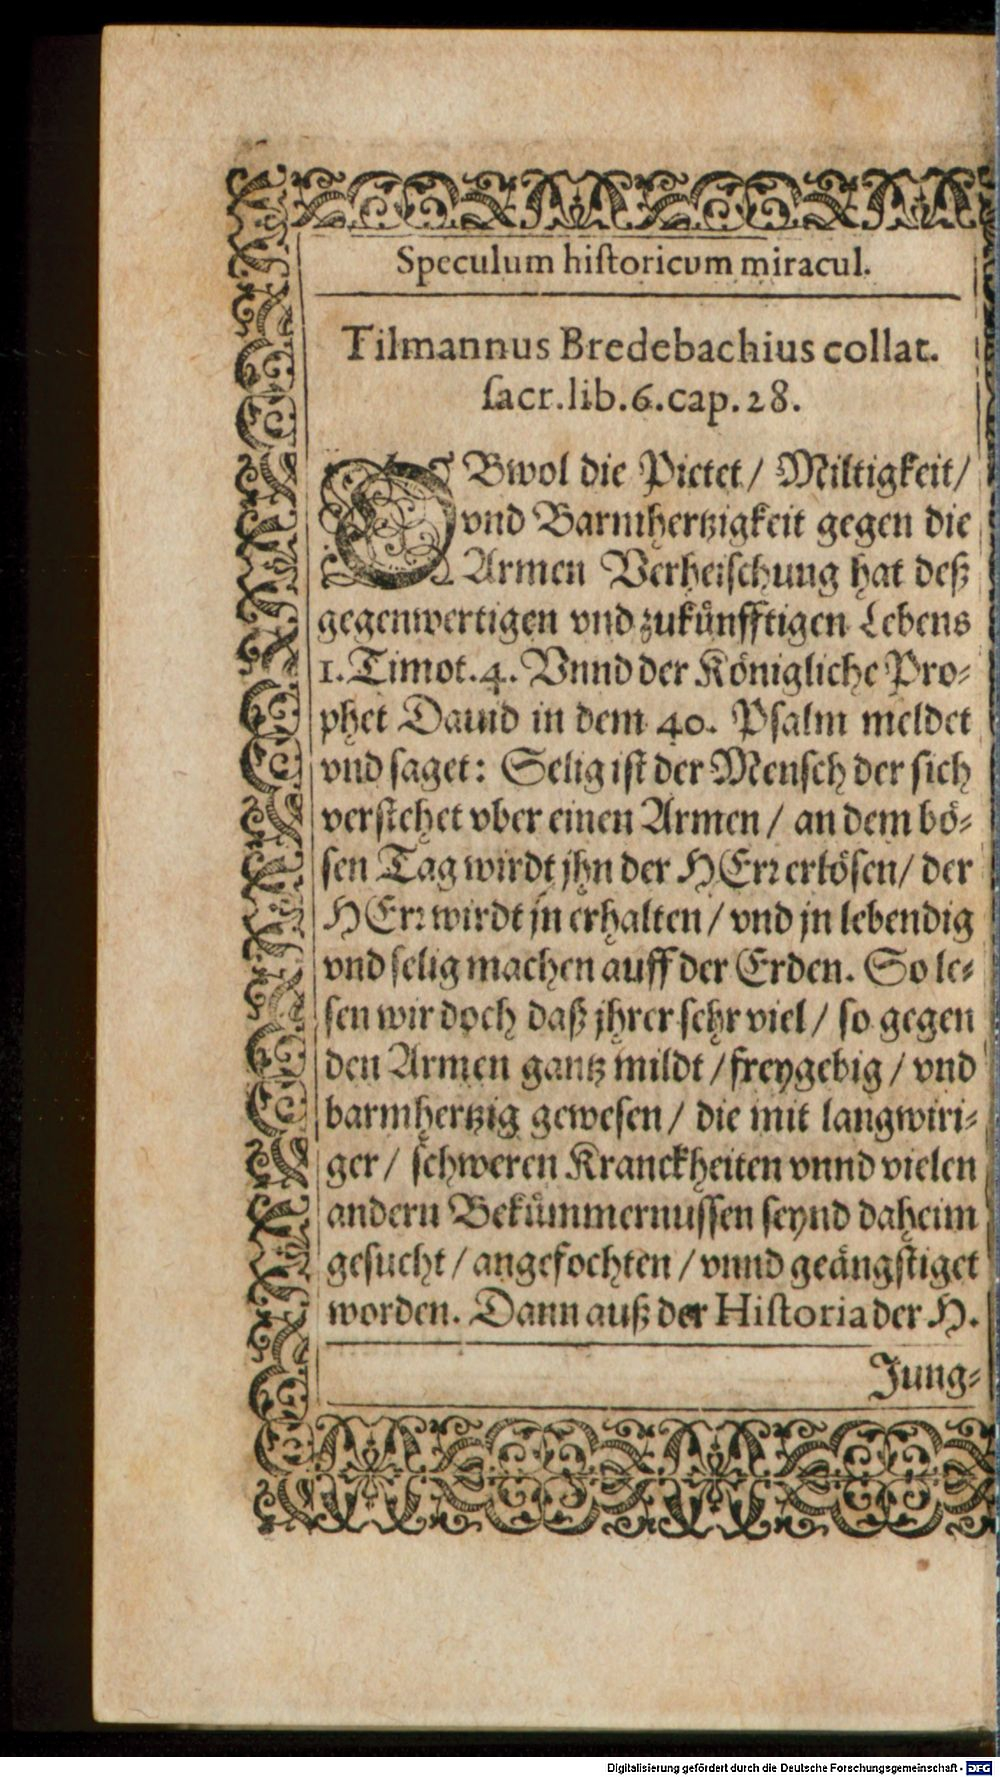 Speculum historicum miracul.
Tilmannus Bredebachius collat.
sacr. lib. 6. cap. 28.
OBwol die Pietet / Miltigkeit /
vnd Barmhertzigkeit gegen die
Armen Verheischung hat deß
gegenwertigen vnd zukünfftigen Lebens
1. Timot. 4. Vnnd der Königliche Pro-
phet Dauid in dem 40. Psalm meldet
vnd saget: Selig ist der Mensch der sich
verstehet vber einen Armen / an dem bö-
sen Tag wirdt jhn der HErr erlösen / der
HErr wirdt jn erhalten / vnd jn lebendig
vnd selig machen auff der Erden. So le-
sen wir doch daß jhrer sehr viel / so gegen
den Armen gantz mildt / freygebig / vnd
barmhertzig gewesen / die mit langwiri-
ger / schweren Kranckheiten vnnd vielen
andern Bekümmernussen seynd daheim
gesucht / angefochten / vnnd geängstiget
worden. Dann auß der Historia der H.
Jung-
Digitalisierung gefördert durch die Deutsche Forschungsgemeinschaft - DFG